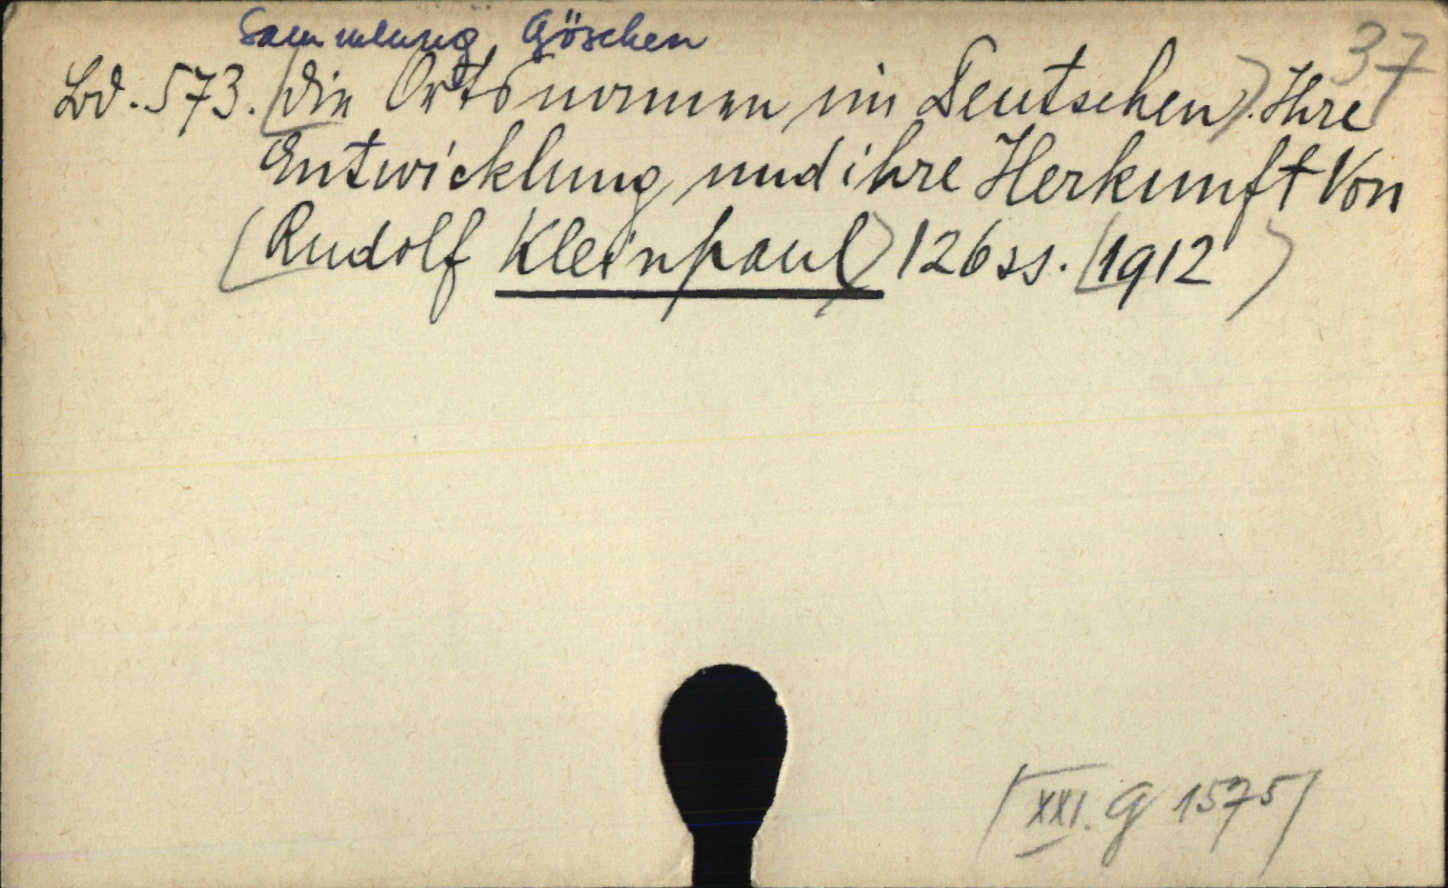 Sammlung Göschen
37
Bd. 573. [Die Ortsnamen im Deutschen]. Ihre
Entwicklung und ihre Herkunft Von
[Rudolf Kleinpaul] 126 ss. [1912]
[XXI. G 1575]